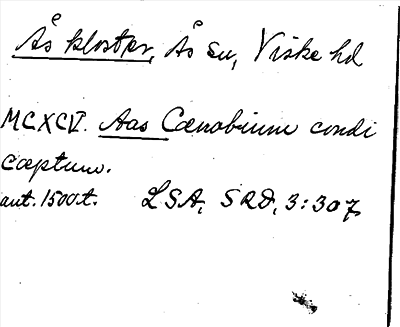 Ås kloster, Ås sn, Viske hd
MCXCV. Aas Cœnobium condi
cœptum.
ant. 1500t. LSA, SRD, 3:307